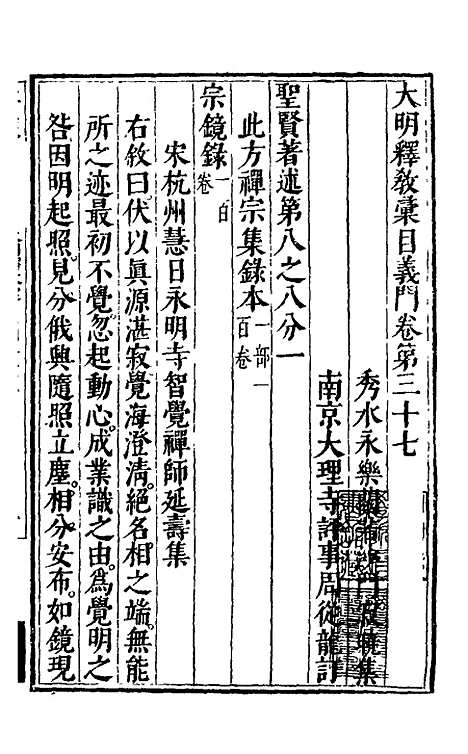 大明釋教彙目義門卷第三十七
秀水永樂 寂曉集
南京大理寺評事周從龍訂
聖賢著述第八之八分一
此方禪宗集錄本一部一百卷
宗鏡錄一百卷
宋杭州慧日永明寺智覺禪師延壽集
右敘曰伏以眞源湛寂覺海澄淸。絕名相之端。無能
所之迹最初不覺。忽起動心。成業識之由。爲覺明之
咎因明起照。見分俄興隨照立塵。相分安布。如鏡現